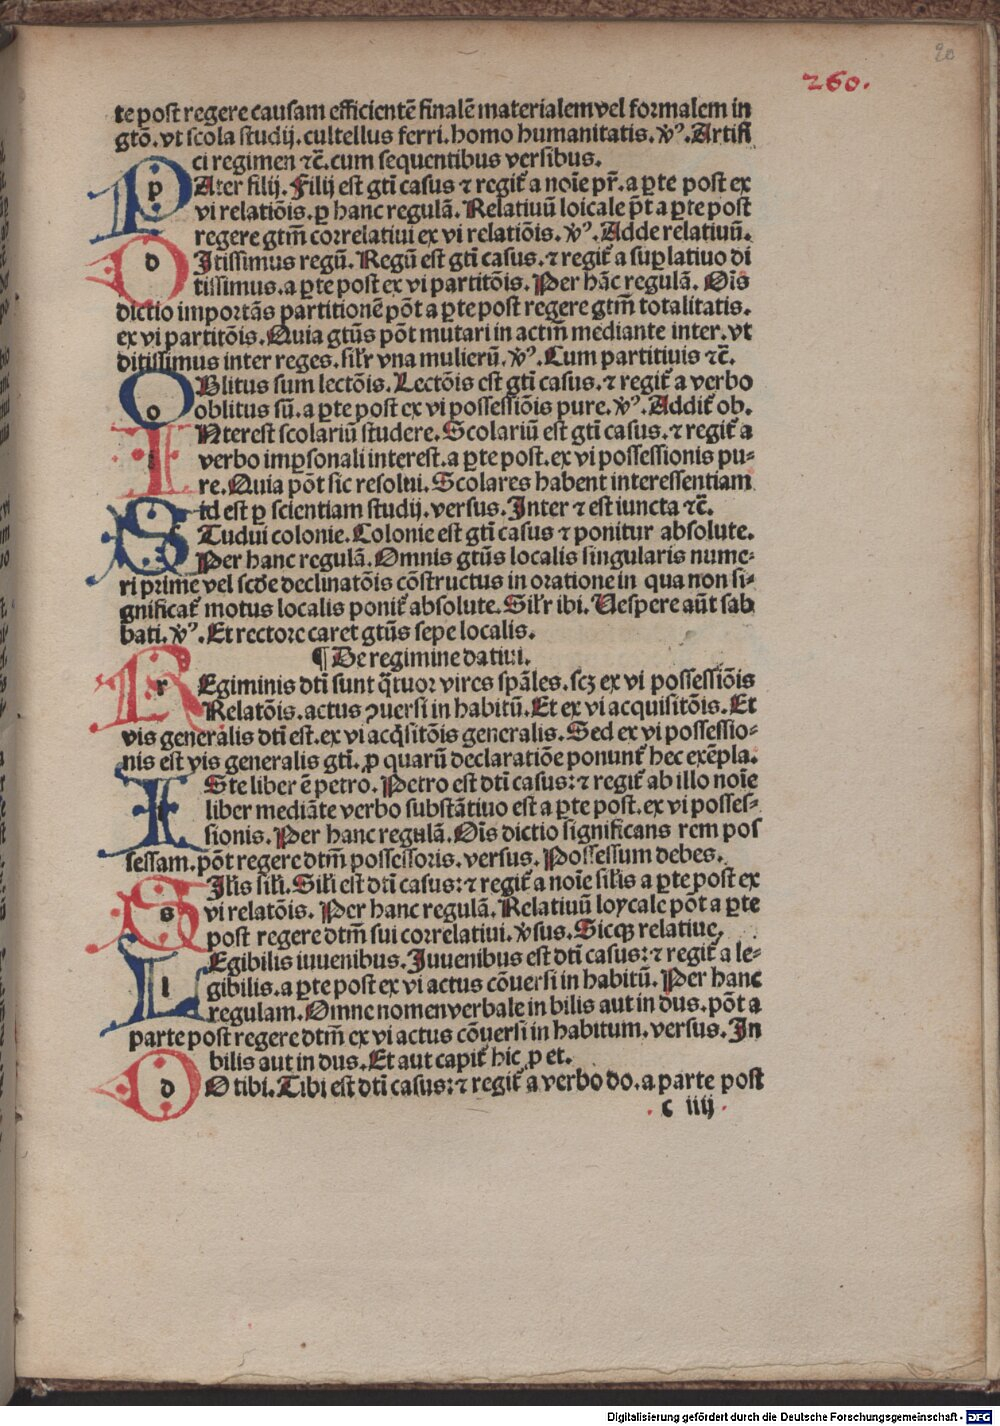 20
260.
te post regere causam efficientē finalē materialem vel formalem in
gtō. vt scola studij. cultellus ferri. homo humanitatis. v̾ꝰ. Artifi
ci regimen ⁊c̄. cum sequentibus versibus.
PAter filij. Filij est gti casus ⁊ regit᷑ a noīe pr̄. a ꝑte post ex
vi relatiōis. ꝑ hanc regulā. Relatiuū loicale pōt a ꝑte post
regere gtm̄ correlatiui ex vi relatiōis. v̾ꝰ. Adde relatiuū.
DItissimus regū. Regū est gti casus. ⁊ regit᷑ a suꝑlatiuo di
tissimus. a ꝑte post ex vi partitōis. Per hāc regulā. Oīs
dictio importās partitionē pōt a ꝑte post regere gtm̄ totalitatis.
ex vi partitōis. Quia gtūs pōt mutari in actm̄ mediante inter. vt
ditissimus inter reges. sil'r vna mulierū. v̾ꝰ. Cum partitiuis ⁊c̄.
OBlitus sum lectōis. Lectōis est gti casus. ⁊ regit᷑ a verbo
oblitus sū. a ꝑte post ex vi possessiōis pure. v̾ꝰ. Addit᷑ ob.
INterest scolariū studere. Scolariū est gti casus. ⁊ regit᷑ a
verbo imꝑsonali interest. a ꝑte post. ex vi possessionis pu-
re. Quia pōt sic resolui. Scolares habent interessentiam
id est ꝑ scientiam studij. versus. Inter ⁊ est iuncta ⁊c̄.
STudui colonie. Colonie est gti casus ⁊ ponitur absolute.
Per hanc regulā. Omnis gtūs localis singularis nume-
ri prime vel scd̄e declinatōis cōstructus in oratione in qua non si-
gnificat᷑ motus localis ponit᷑ absolute. Sil'r ibi. Uespere aūt sab
bati. v̾ꝰ. Et rectore caret gtūs sepe localis.
¶ De regimine datiui.
REgiminis dti sunt q̄tuor vires spāles. scꝫ ex vi possessiōis
Relatōis. actus ꝯuersi in habitū. Et ex vi acquisitōis. Et
vis generalis dti est. ex vi acq̄sitōis generalis. Sed ex vi possessio-
nis est vis generalis gti. ꝓ quarū declaratiōe ponunt᷑ hec exēpla.
ISte liber ē petro. Petro est dti casus: ⁊ regit᷑ ab illo noīe
liber mediāte verbo substātiuo est a ꝑte post. ex vi posses-
sionis. Per hanc regulā. Oīs dictio significans rem pos
sessam. pōt regere dtm̄ possessoris. versus. Possessum debes.
SIl'is sil'i. Sil'i est dti casus: ⁊ regit᷑ a noīe sil'is a ꝑte post ex
vi relatōis. Per hanc regulā. Relatiuū loycale pōt a ꝑte
post regere dtm̄ sui correlatiui. v̾sus. Sicqꝫ relatiue.
LEgibilis iuuenibus. Iuuenibus est dti casus: ⁊ regit᷑ a le-
gibilis. a ꝑte post ex vi actus cōuersi in habitū. Per hanc
regulam. Omne nomen verbale in bilis aut in dus. pōt a
parte post regere dtm̄ ex vi actus cōuersi in habitum. versus. In
bilis aut in dus. Et aut capit᷑ hic ꝓ et.
DO tibi. Tibi est dti casus: ⁊ regit᷑ a verbo do. a parte post
c iiij
Digitalisierung gefördert durch die Deutsche Forschungsgemeinschaft - DFG